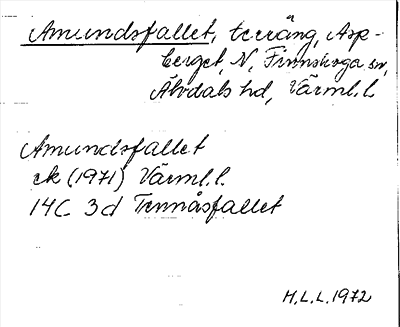 Amundsfallet, terräng, Asp-
berget, N. Finnskoga sn,
Älvdals hd, Värml. l.
Amundsfallet
ek (1971) Värml. l.
14C 3d Tennåsfallet
H.L.L. 1972